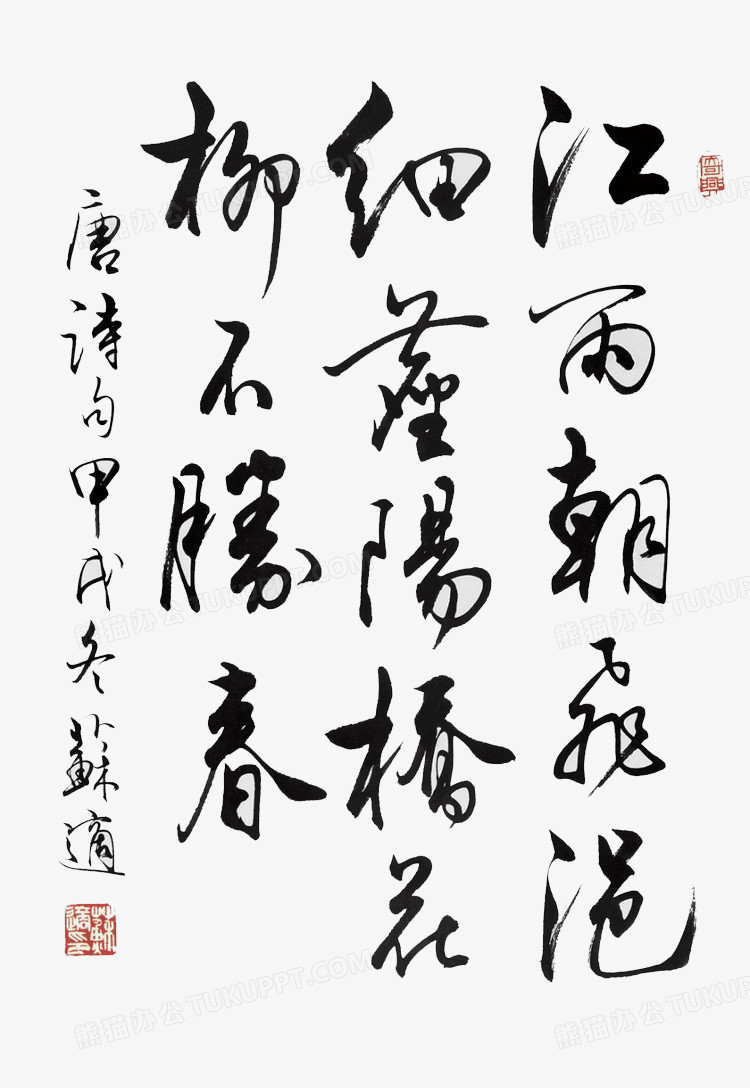 江雨朝飛浥
細塵陽橋花
柳不勝春
唐詩句甲戌冬蘇適
熊猫办公 TUKUPPT.COM